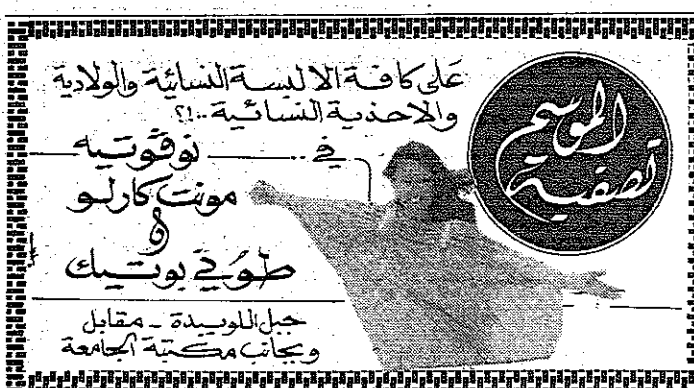 تصفية
الموسم
على كافة الالبسة النسائية والولادية
والاحذية النسائية..!؟
في..
نوفوتيه
مونت كارلو
و
طوني بوتيك
جبل اللويبدة - مقابل
وبجانب مكتبة الجامعة